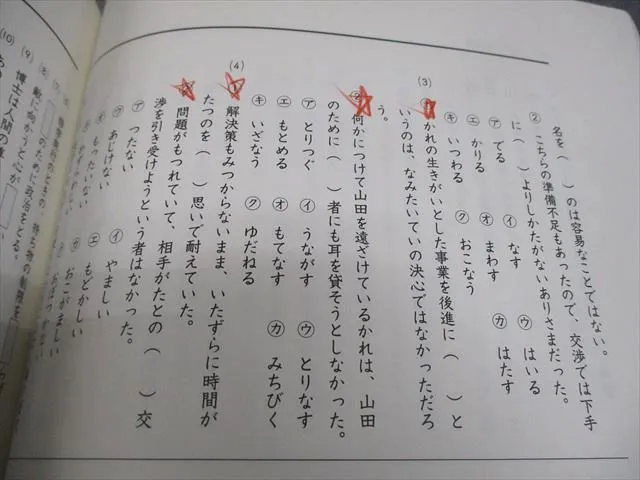 名を（　　）のは容易なことではない。
② こちらの準備不足もあったので、交渉では下手
に（　　）よりしかたがないありさまだった。
㋐ てる　㋑ なす　㋒ はいる
㋓ かりる　㋔ まわす　㋕ はたす
㋖ いつわる　㋗ おこなう
(3)
かれの生きがいとした事業を後進に（　　）と
いうのは、なみたいていの決心ではなかっただろ
う。
何かにつけて山田を遠ざけているかれは、山田
のために（　　）者にも耳を貸そうとしなかった。
㋐ とりつぐ　㋑ うながす　㋒ とりなす
㋓ もとめる　㋔ もてなす　㋕ みちびく
㋖ いざなう　㋗ ゆだねる
(4)
① 解決策もみつからないまま、いたずらに時間が
たつのを（　　）思いで耐えていた。
問題がもつれていて、相手がたとの（　　）交
渉を引き受けようという者はなかった。
㋐ つたない　㋑ やましい
㋒ あじけない　㋓ もどかしい
㋔ もったいない　おこがましい
のために政治をとる。
(9) 敵に向かう心が
(10) 博士は人間の尊